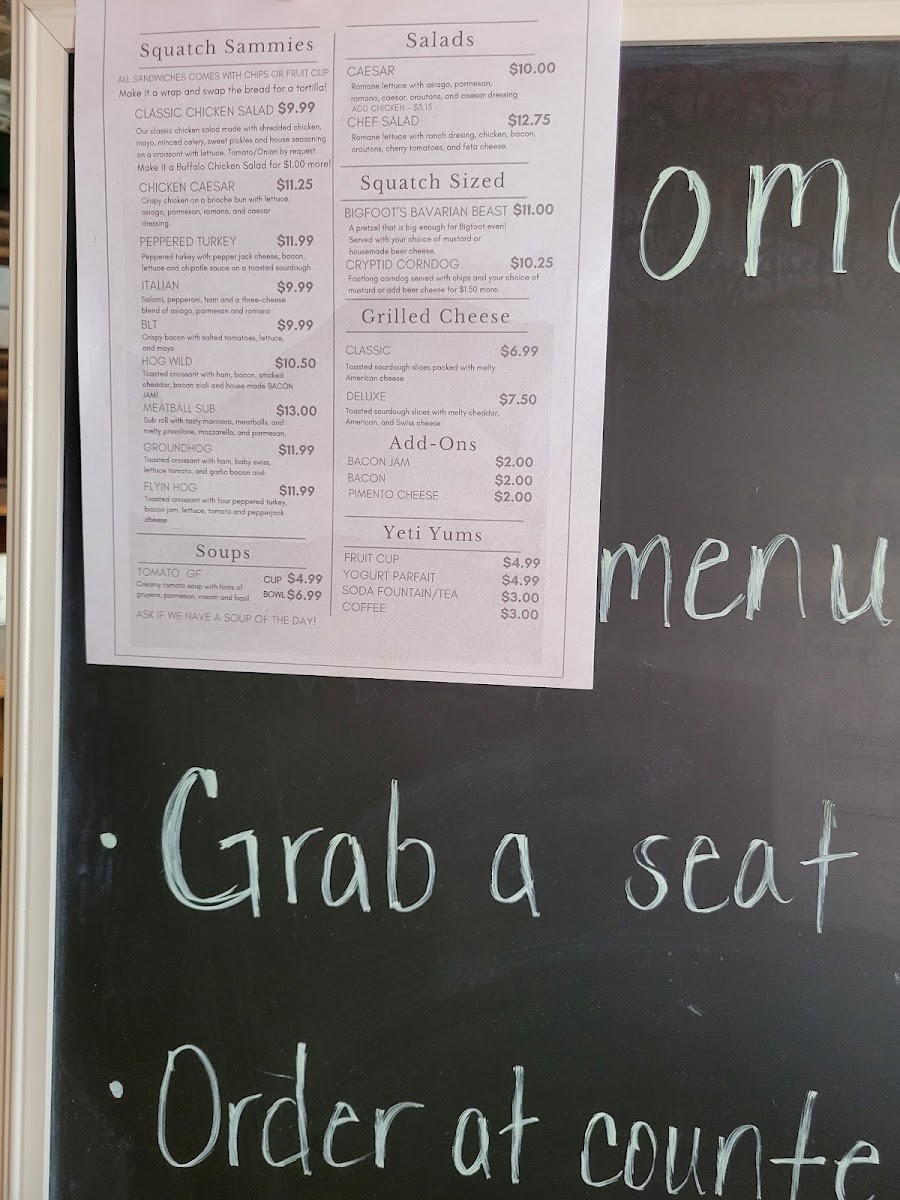 Squatch Sammies
ALL SANDWICHES COMES WITH CHIPS OR FRUIT CUP
Make it a wrap and swap the bread for a tortilla!
CLASSIC CHICKEN SALAD $9.99
Our classic chicken salad made with shredded chicken,
mayo, minced celery, sweet pickles and house seasoning
on a croissant with lettuce. Tomato/Onion by request.
Make it a Buffalo Chicken Salad for $1.00 more!
CHICKEN CAESAR $11.25
Crispy chicken on a brioche bun with lettuce,
asiago, parmesan, romano, and caesar
dressing.
PEPPERED TURKEY $11.99
Peppered turkey with pepper jack cheese, bacon,
lettuce and chipotle sauce on a toasted sourdough
ITALIAN $9.99
Salami, pepperoni, ham and a three-cheese
blend of asiago, parmesan and romano
BLT $9.99
Crispy bacon with salted tomatoes, lettuce,
and mayo
HOG WILD $10.50
Toasted croissant with ham, bacon, smoked
cheddar, bacon aioli and house made BACON
JAM!
MEATBALL SUB $13.00
Sub roll with tasty marinara, meatballs, and
melty provolone, mozzarella, and parmesan.
GROUNDHOG $11.99
Toasted croissant with ham, baby swiss,
lettuce tomato, and garlic bacon aioli
FLYIN HOG $11.99
Toasted croissant with four peppered turkey,
bacon jam, lettuce, tomato and pepperjack
cheese
Soups
TOMATO GF CUP $4.99
Creamy tomato soup with hints of
gruyere, parmesan, cream and basil. BOWL $6.99
ASK IF WE HAVE A SOUP OF THE DAY!
Salads
CAESAR $10.00
Romane lettuce with asiago, parmesan,
romano, caesar, croutons, and caesar dressing
ADD CHICKEN - $3.15
CHEF SALAD $12.75
Romane lettuce with ranch dresing, chicken, bacon,
croutons, cherry tomatoes, and feta cheese.
Squatch Sized
BIGFOOT'S BAVARIAN BEAST $11.00
A pretzel that is big enough for Bigfoot even!
Served with your choice of mustard or
housemade beer cheese.
CRYPTID CORNDOG $10.25
Footlong corndog served with chips and your choice of
mustard or add beer cheese for $1.50 more.
Grilled Cheese
CLASSIC $6.99
Toasted sourdough slices packed with melty
American cheese
DELUXE $7.50
Toasted sourdough slices with melty cheddar,
American, and Swiss cheese
Add-Ons
BACON JAM $2.00
BACON $2.00
PIMENTO CHEESE $2.00
Yeti Yums
FRUIT CUP $4.99
YOGURT PARFAIT $4.99
SODA FOUNTAIN/TEA $3.00
COFFEE $3.00
om
menu
· Grab a seat
· Order at counte